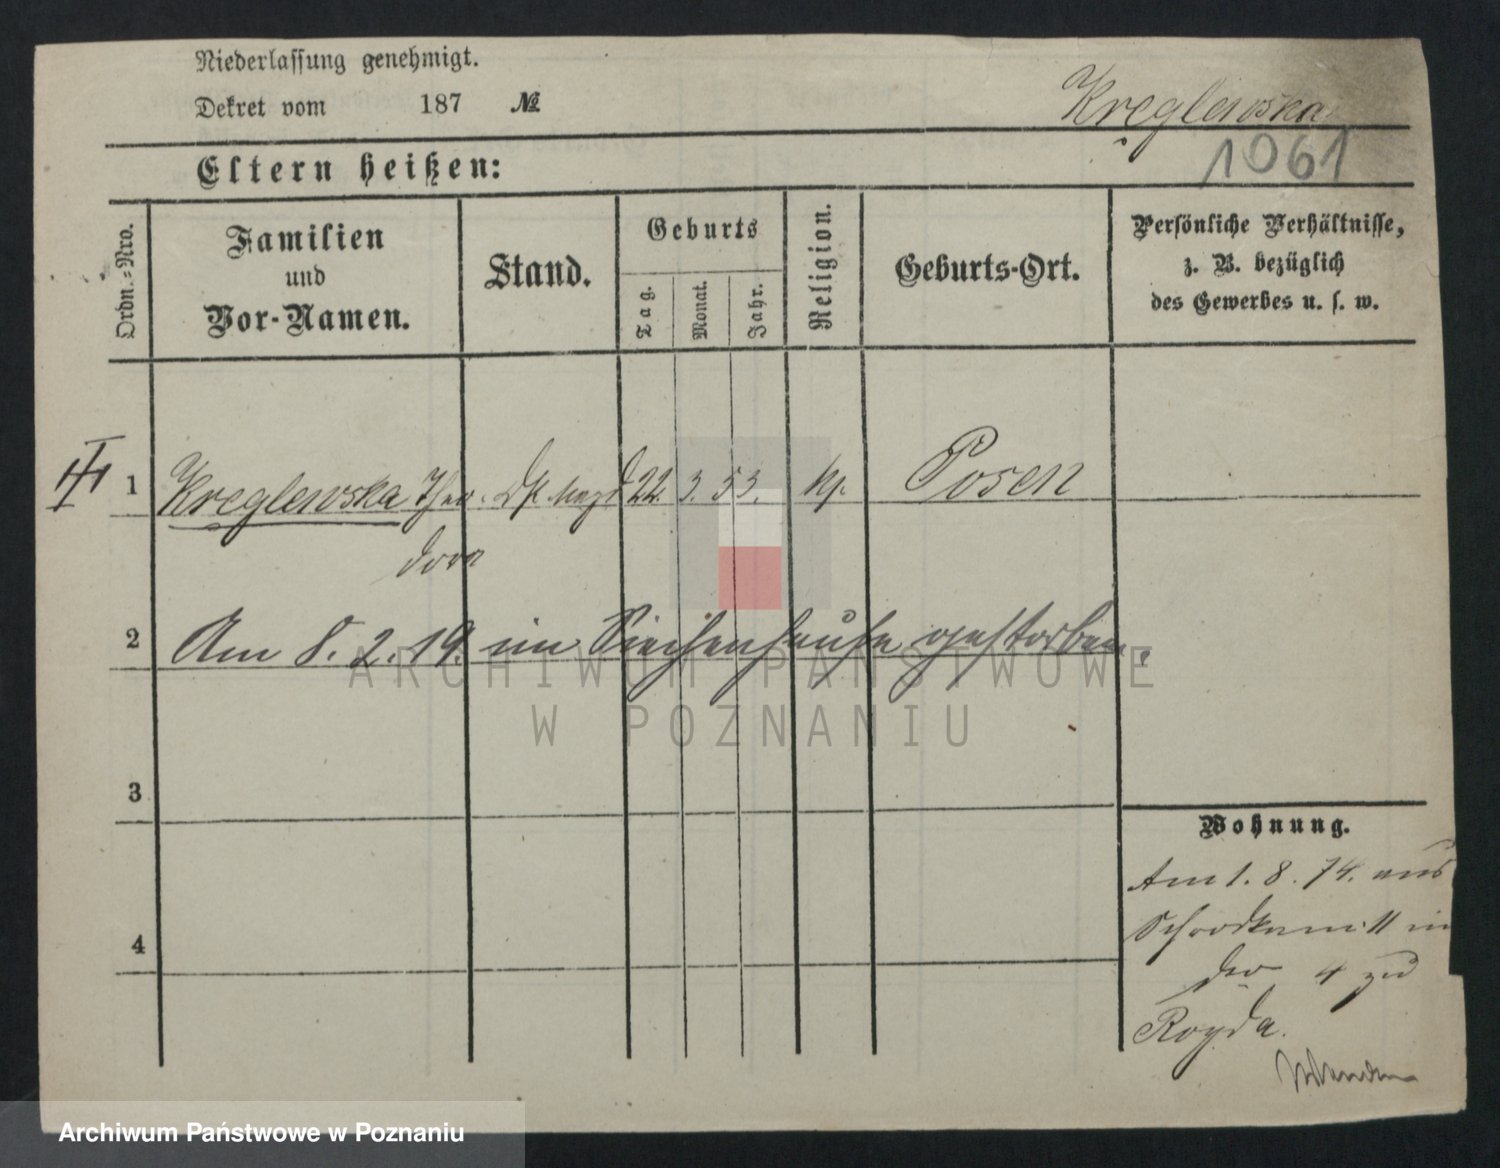 Niederlassung genehmigt.
Dekret vom 187 №
Kreglewska
1061
Eltern heißen:
Ordn.-Nro.
Familien
und
Vor-Namen.
Stand.
Geburts
Tag.
Monat.
Jahr.
Religion.
Geburts-Ort.
Persönliche Verhältnisse,
z. B. bezüglich
des Gewerbes u. s. w.
1 Kreglewska Theo- 22. 3. 53. Posen
dora
2 Am 8. 2. 19. im Siechenhause gestorben.
3
4
Wohnung.
Am 1. 8. 74. aus
11 in
der 4 zu
ARCHIWUM PAŃSTWOWE
W POZNANIU
Archiwum Państwowe w Poznaniu